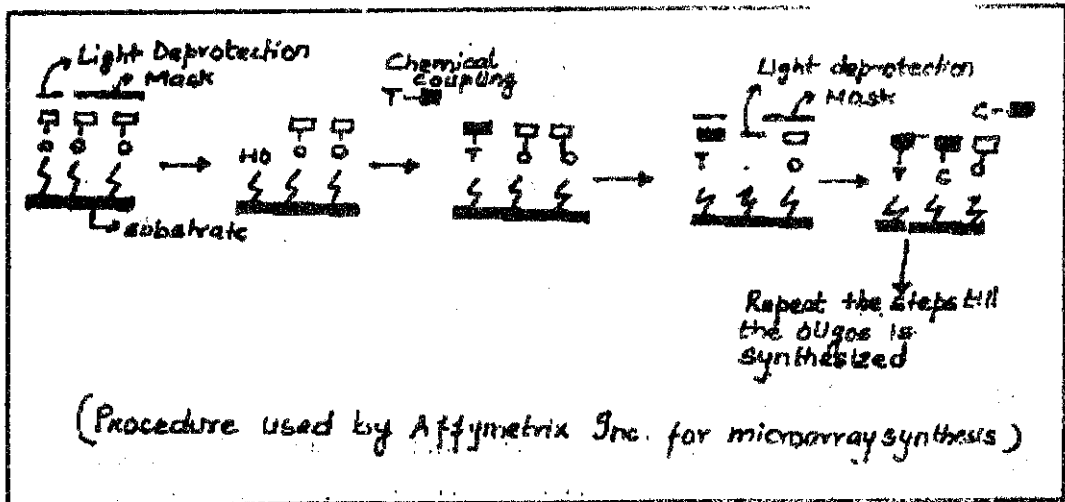 Light Deprotection
Mask
HO
Chemical
coupling
T
T
Light deprotection
Mask
T
C
T
C
substrate
Repeat the steps till
the oligos is
synthesized
(Procedure used by Affymetrix Inc. for microarray synthesis)